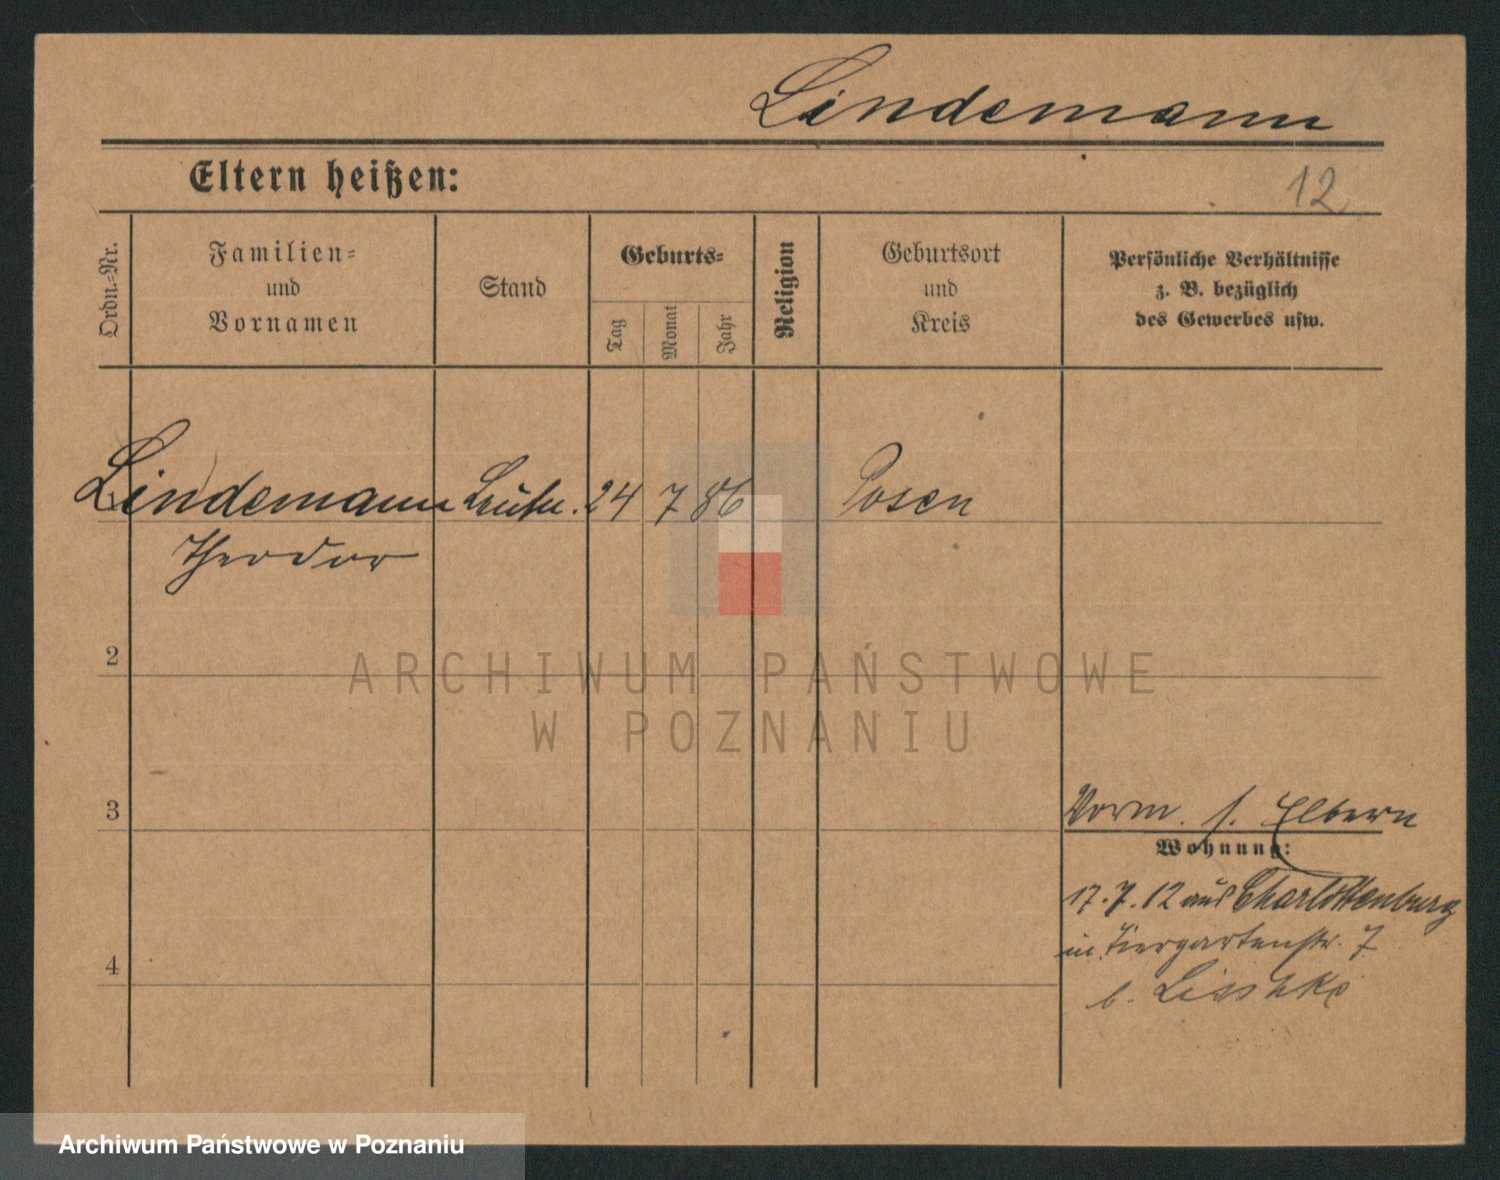 Lindemann
Eltern heißen:
12
Ordn.-Nr.
Familien=
und
Vornamen
Stand
Geburts=
Tag
Monat
Jahr
Religion
Geburtsort
und
Kreis
Persönliche Verhältnisse
z. B. bezüglich
des Gewerbes usw.
Lindemann 24 7 86 Posen
Theodor
2
3
4
Vorm. s. Eltern
Wohnung:
17.7.12 aus Charlottenburg
in Tiergartenstr. 7
b.
ARCHIWUM PAŃSTWOWE
W POZNANIU
Archiwum Państwowe w Poznaniu